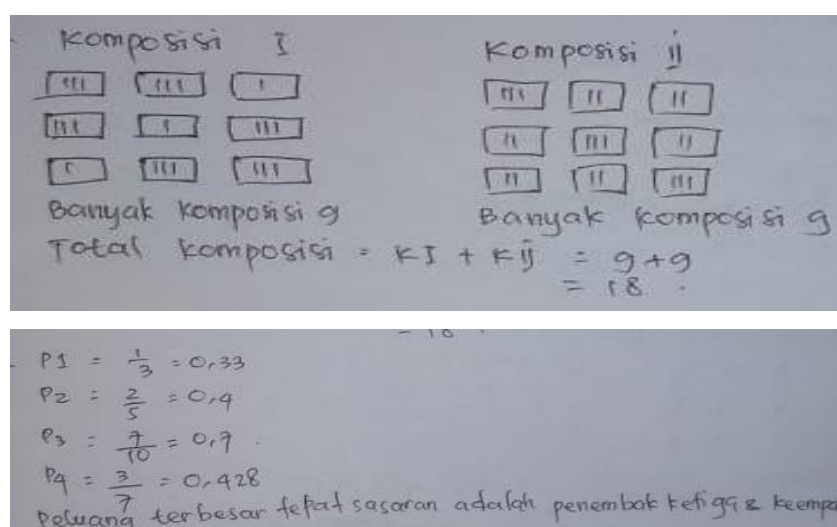 Komposisi I
III III I
III I III
I III III
Banyak komposisi 9
Komposisi II
III II II
II III II
II II III
Banyak komposisi 9
Total komposisi = KI + KII = 9+9
= 18 .
P1 = 1/3 = 0,33
P2 = 2/5 = 0,4
P3 = 7/10 = 0,7 .
P4 = 3/7 = 0,428
Peluang terbesar tepat sasaran adalah penembak ketiga & keemp